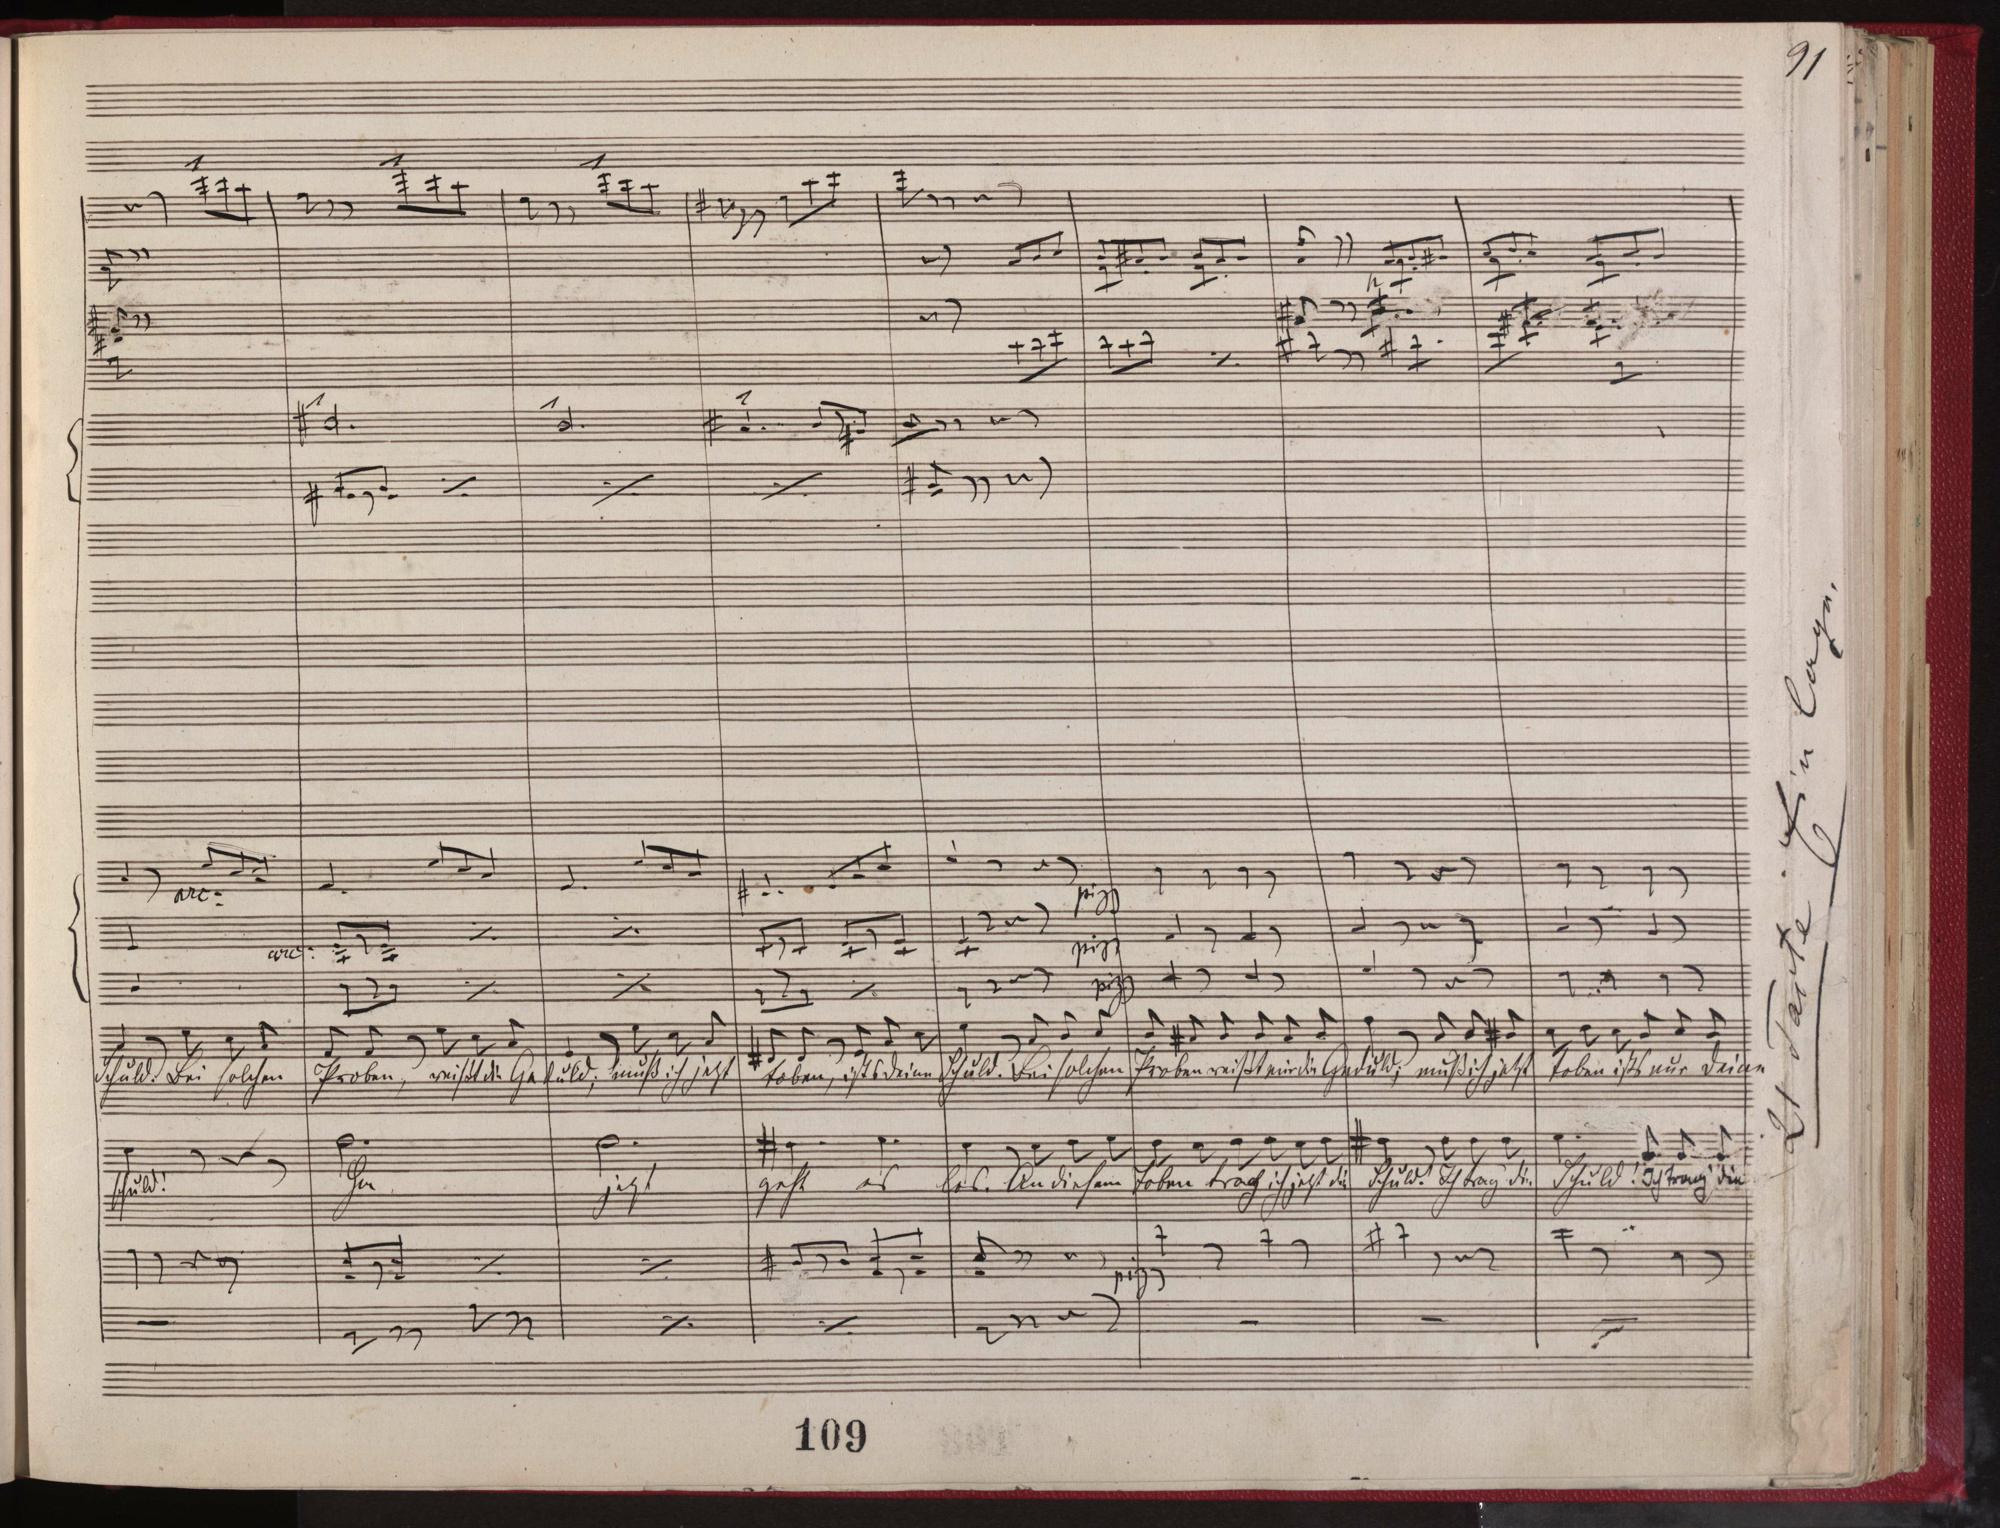 91
arc:
pizz
arc:
pizz
pizz
Schuld. Bei solchen Proben, reißt die Geduld; muß ich jetzt toben, ists deine Schuld. Bei solchen Proben reißt mir die Geduld; muß ich jetzt toben ists nur deine
schuld! Ha jetzt geht es los. An diesem toben trag ich jetzt die Schuld! Ich trag die Schuld! Ich trag die
pizz
109
21 Takte